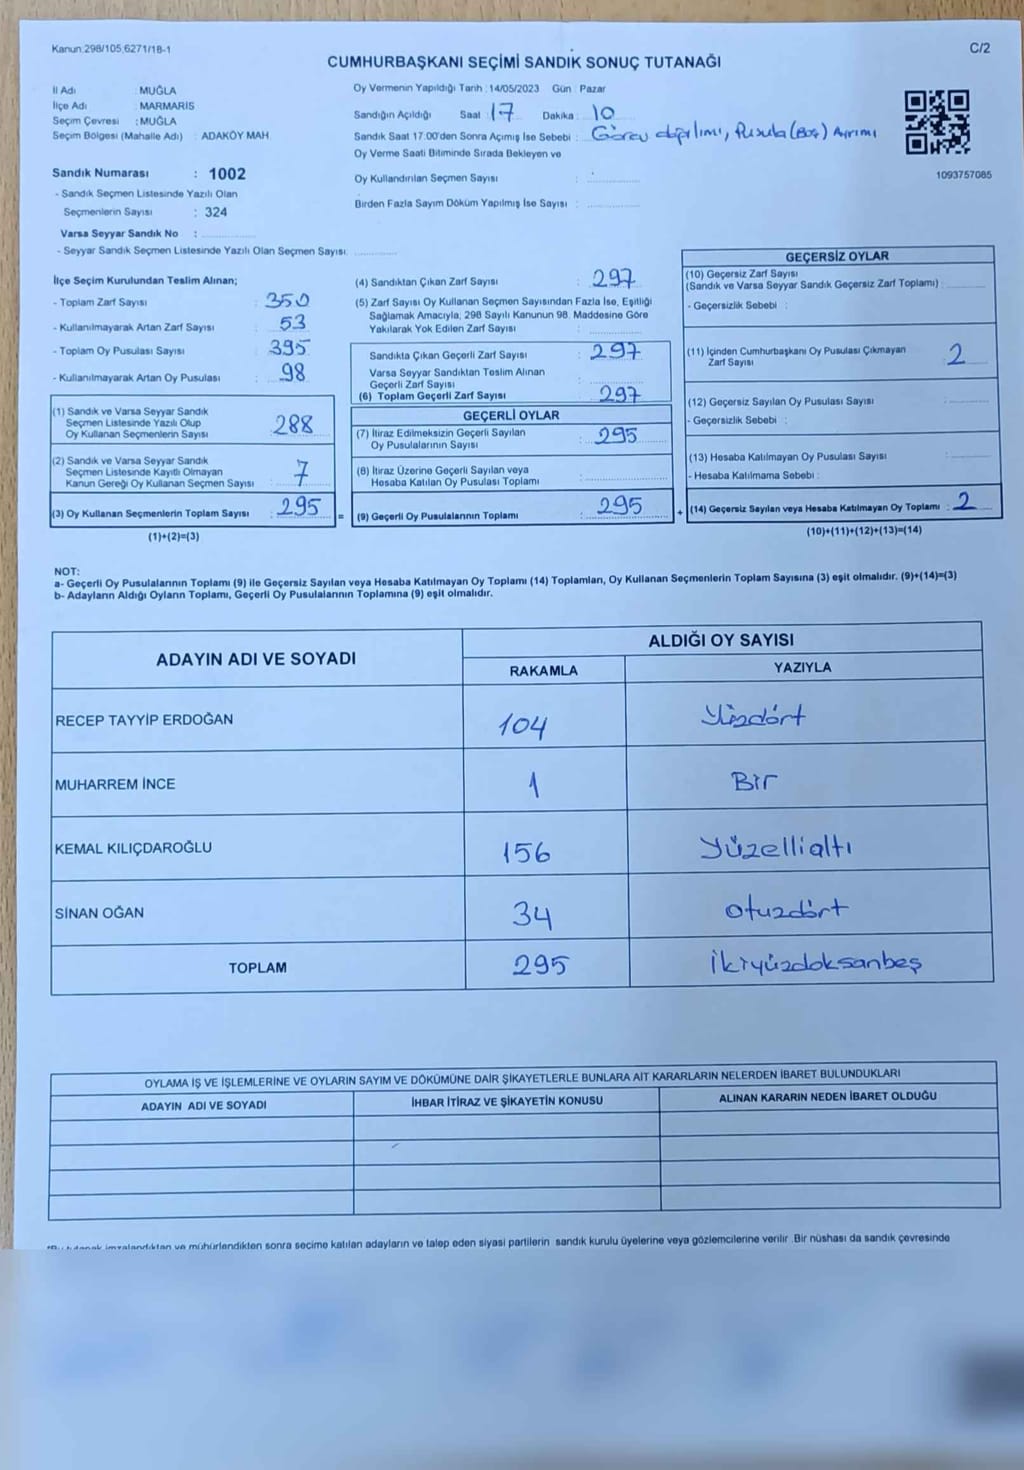 Kanun:298/105,6271/18-1
C/2
CUMHURBAŞKANI SEÇİMİ SANDIK SONUÇ TUTANAĞI
İl Adı : MUĞLA
İlçe Adı : MARMARİS
Seçim Çevresi : MUĞLA
Seçim Bölgesi (Mahalle Adı) : ADAKÖY MAH.
Oy Vermenin Yapıldığı Tarih : 14/05/2023 Gün : Pazar
Sandığın Açıldığı Saat : 17 Dakika : 10
Sandık Saat 17:00'den Sonra Açımış İse Sebebi : Görev dağılımı, Pusula (Boş) Ayrımı
Oy Verme Saati Bitiminde Sırada Bekleyen ve
Oy Kullandırılan Seçmen Sayısı :
Birden Fazla Sayım Döküm Yapılmış İse Sayısı :
1093757085
Sandık Numarası : 1002
- Sandık Seçmen Listesinde Yazılı Olan
Seçmenlerin Sayısı : 324
Varsa Seyyar Sandık No :
- Seyyar Sandık Seçmen Listesinde Yazılı Olan Seçmen Sayısı:
İlçe Seçim Kurulundan Teslim Alınan;
- Toplam Zarf Sayısı : 350
- Kullanılmayarak Artan Zarf Sayısı : 53
- Toplam Oy Pusulası Sayısı : 395
- Kullanılmayarak Artan Oy Pusulası : 98
(1) Sandık ve Varsa Seyyar Sandık
Seçmen Listesinde Yazılı Olup
Oy Kullanan Seçmenlerin Sayısı : 288
(2) Sandık ve Varsa Seyyar Sandık
Seçmen Listesinde Kayıtlı Olmayan
Kanun Gereği Oy Kullanan Seçmen Sayısı : 7
(3) Oy Kullanan Seçmenlerin Toplam Sayısı : 295
(1)+(2)=(3)
(4) Sandıktan Çıkan Zarf Sayısı : 297
(5) Zarf Sayısı Oy Kullanan Seçmen Sayısından Fazla İse, Eşitliği
Sağlamak Amacıyla, 298 Sayılı Kanunun 98. Maddesine Göre
Yakılarak Yok Edilen Zarf Sayısı :
Sandıkta Çıkan Geçerli Zarf Sayısı : 297
Varsa Seyyar Sandıktan Teslim Alınan
Geçerli Zarf Sayısı :
(6) Toplam Geçerli Zarf Sayısı : 297
GEÇERLİ OYLAR
(7) İtiraz Edilmeksizin Geçerli Sayılan
Oy Pusulalarının Sayısı : 295
(8) İtiraz Üzerine Geçerli Sayılan veya
Hesaba Katılan Oy Pusulası Toplamı :
= (9) Geçerli Oy Pusulalarının Toplamı : 295
GEÇERSİZ OYLAR
(10) Geçersiz Zarf Sayısı
(Sandık ve Varsa Seyyar Sandık Geçersiz Zarf Toplamı) :
- Geçersizlik Sebebi :
(11) İçinden Cumhurbaşkanı Oy Pusulası Çıkmayan
Zarf Sayısı : 2
(12) Geçersiz Sayılan Oy Pusulası Sayısı :
- Geçersizlik Sebebi :
(13) Hesaba Katılmayan Oy Pusulası Sayısı :
- Hesaba Katılmama Sebebi :
+ (14) Geçersiz Sayılan veya Hesaba Katılmayan Oy Toplamı : 2
(10)+(11)+(12)+(13)=(14)
NOT:
a- Geçerli Oy Pusulalarının Toplamı (9) ile Geçersiz Sayılan veya Hesaba Katılmayan Oy Toplamı (14) Toplamları, Oy Kullanan Seçmenlerin Toplam Sayısına (3) eşit olmalıdır. (9)+(14)=(3)
b- Adayların Aldığı Oyların Toplamı, Geçerli Oy Pusulalarının Toplamına (9) eşit olmalıdır.
ADAYIN ADI VE SOYADI ALDIĞI OY SAYISI
RAKAMLA YAZIYLA
RECEP TAYYİP ERDOĞAN 104 Yüzdört
MUHARREM İNCE 1 Bir
KEMAL KILIÇDAROĞLU 156 Yüzellialtı
SİNAN OĞAN 34 otuzdört
TOPLAM 295 İkiyüzdoksanbeş
OYLAMA İŞ VE İŞLEMLERİNE VE OYLARIN SAYIM VE DÖKÜMÜNE DAİR ŞİKAYETLERLE BUNLARA AİT KARARLARIN NELERDEN İBARET BULUNDUKLARI
ADAYIN ADI VE SOYADI İHBAR İTİRAZ VE ŞİKAYETİN KONUSU ALINAN KARARIN NEDEN İBARET OLDUĞU
imzalandıktan ve mühürlendikten sonra seçime katılan adayların ve talep eden siyasi partilerin sandık kurulu üyelerine veya gözlemcilerine verilir .Bir nüshası da sandık çevresinde